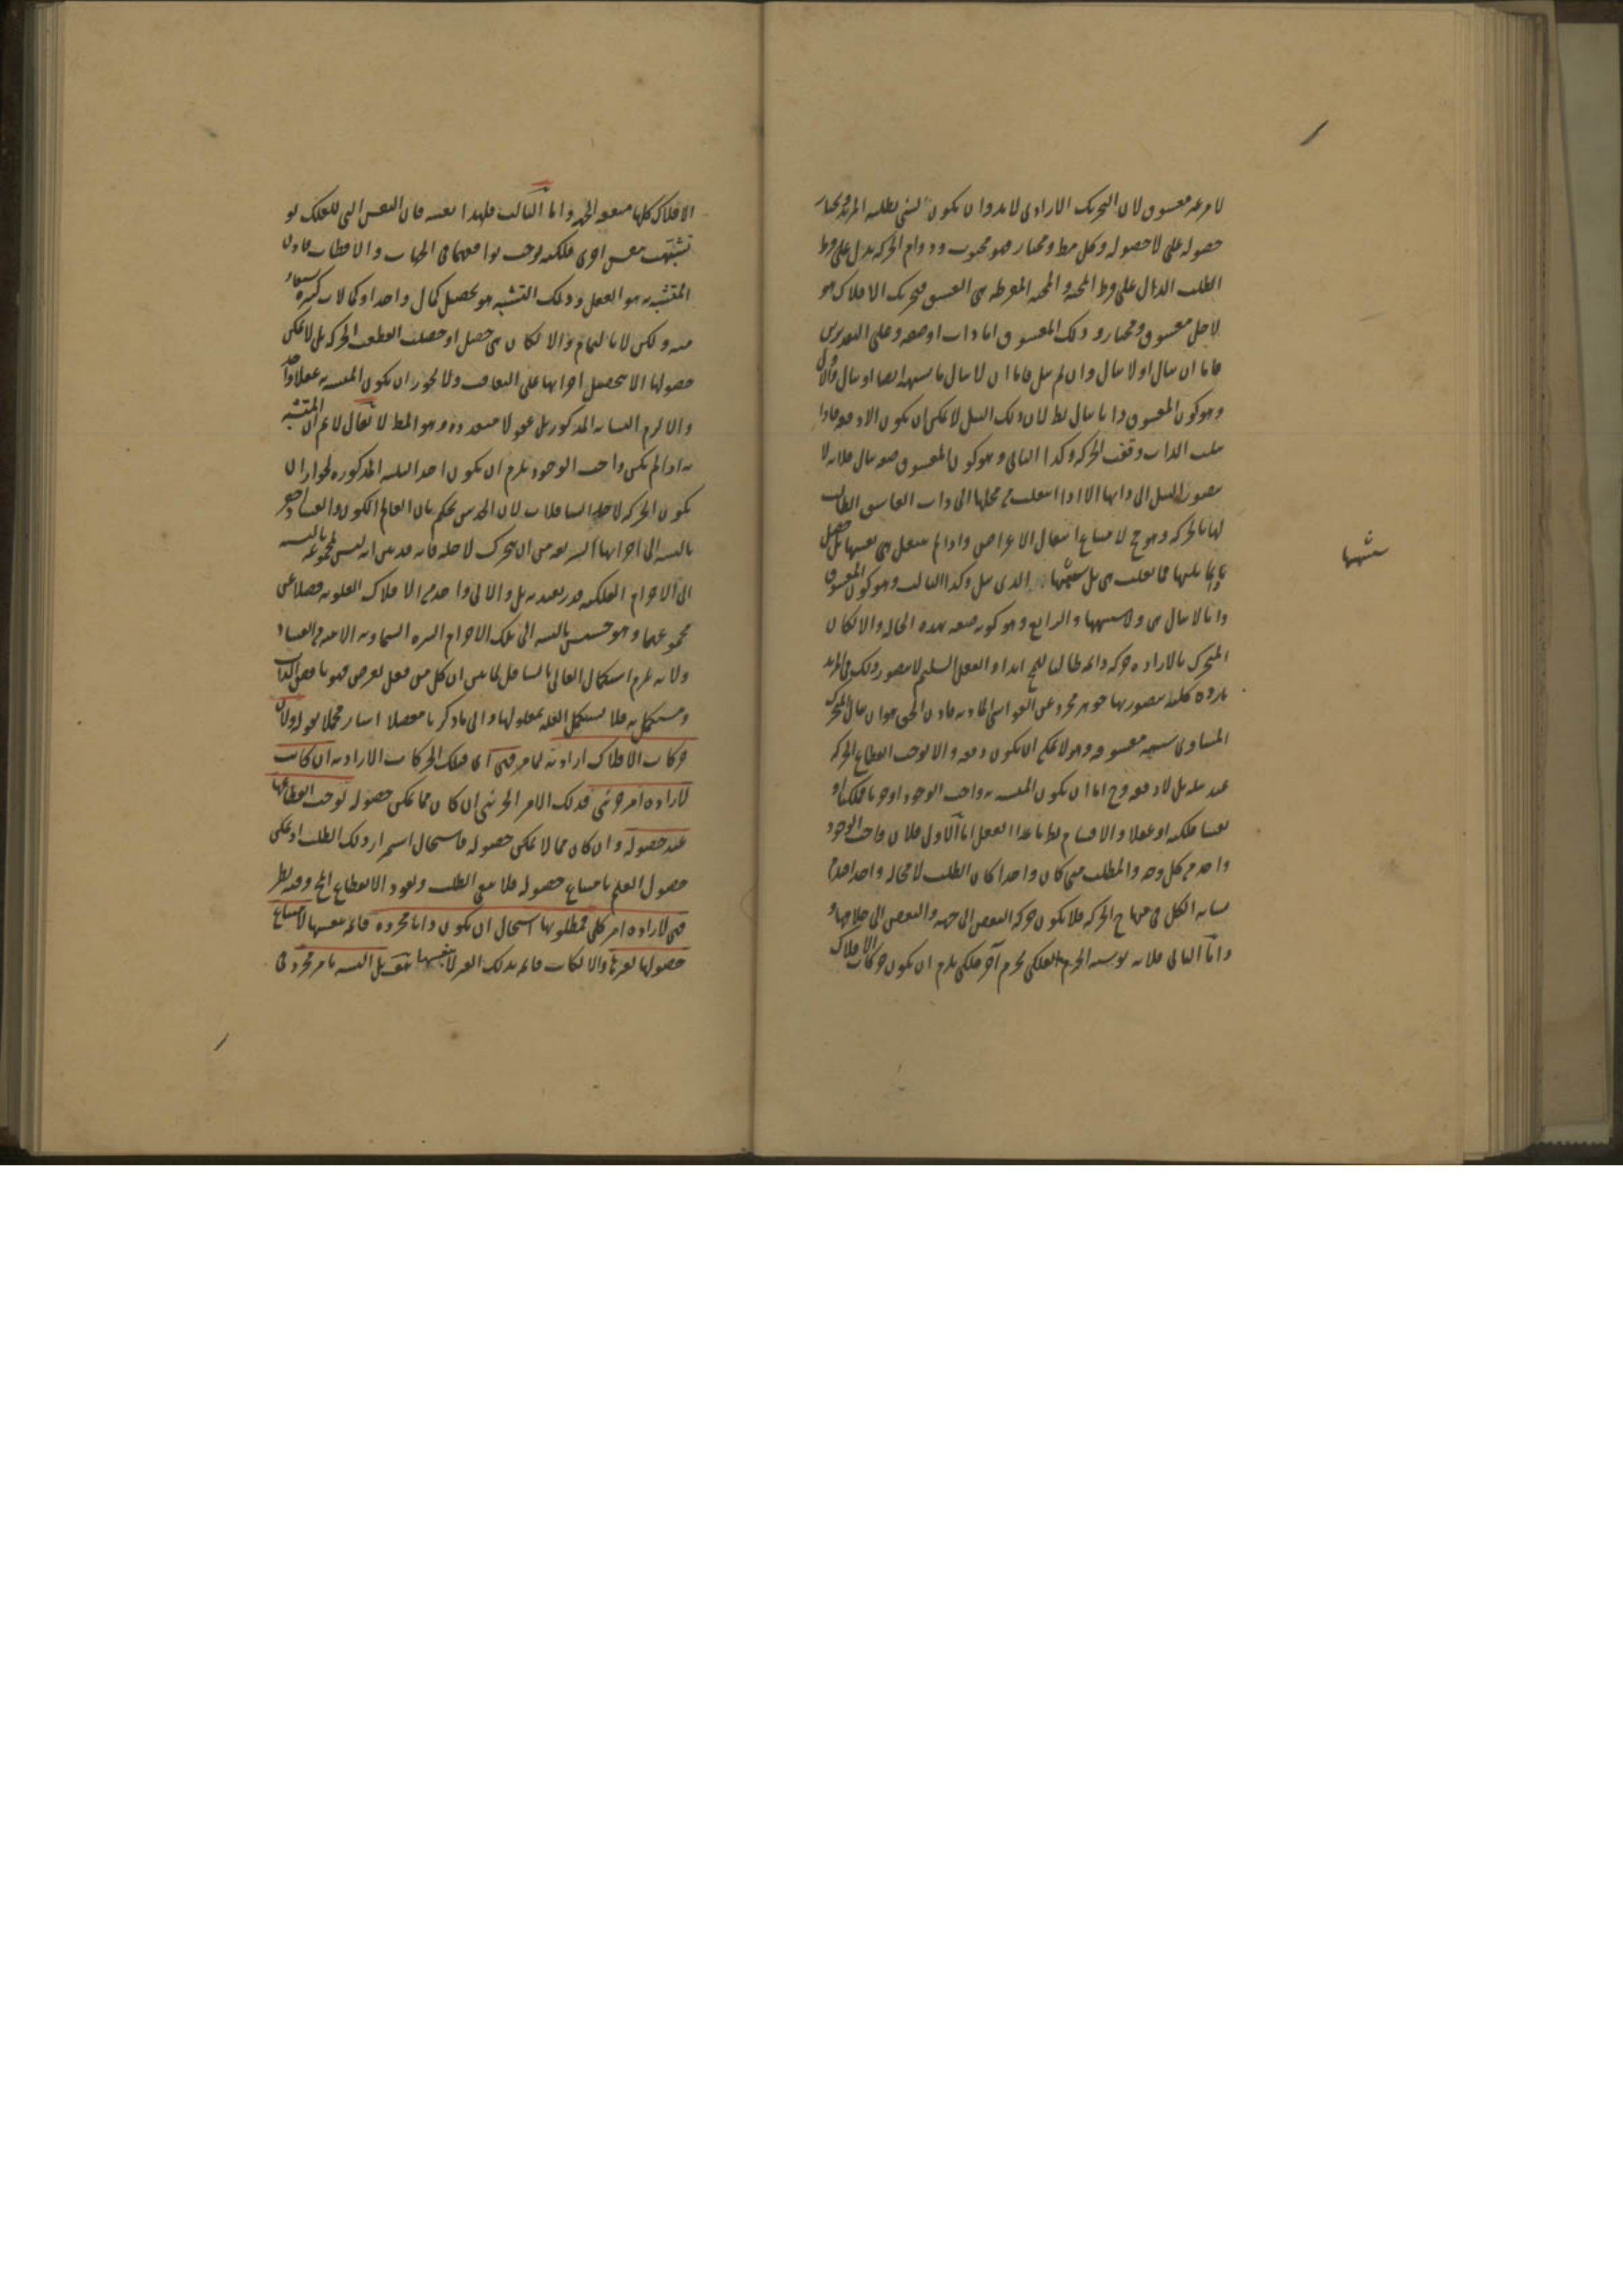 لامر عنه معشوق لان التحريك الارادى لابد وان يكون لشئ يطلبه المريد ويختار
حصوله على لا حصوله وكل مط ومختار فهو محبوب ودوام الحركة يدل على فرط
الطلب الدال على فرط المحبة والمحبة المفرطة هى العشق فتحريك الافلاك هو
لاجل معشوق ومختار وذلك المعشوق اما ذات او صفة وعلى التقديرين
فاما ان ينال او لا ينال وان لم ينل فاما ان لا ينال ما يشبهه ايضا او ينال والاول
وهو كون المعشوق ذاتا ينال بط لان ذلك النيل لا يمكن ان يكون الا دفعة فاذا
نيلت الذات وقفت الحركة وكذا الثانى وهو كون المعشوق صفة ينال فلانه لا
يتصور النيل الى ذاتها الا اذا انتقلت من محلها الى ذات العاشق الطالب
لها بالحركة وهو ح لامتناع انتقال الاعراض واذا لم ينتقل هى نفسها بل حصل
ما يماثلها فما نيلت هى بل شبهها الذى نيل وكذا الثالث وهو كون المعشوق
شبهها
ذاتا لا ينال هى ولا شبهها والرابع وهو كونه صفة بهذه الحالة والا لكان
المتحرك بالارادة حركة دائمة طالبا للمح ابدا والعقل السليم لا يتصور ذلك فى المريد
بارادة كلية يتصور بها جوهر مجرد عن الغواشى المادية فاذن الحق هو ان ينال المتحرك
السماوى شبيه معشوقه وهو لا يمكن ان يكون دفعة والا لوجب انقطاع الحركة
عند نيله بل لا دفعة وح اما ان يكون المتشبه به واجب الوجود او جرما فلكيا او
نفسا فلكية او عقلا والاقسام بط ما عدا العقل اما الاول فلان واجب الوجود
واحد من كل وجه والمطلب متى كان واحدا كان الطلب لا محالة واحدا فيلزم
تشابه الكل فى منهاج الحركة فلا يكون حركة البعض الى جهة والبعض الى خلافها و
واما الثانى فلانه لو تشبه الجرم الفلكى بجرم آخر فلكى يلزم ان يكون حركات الافلاك
الافلاك كلها متفقة الجهة واما الثالث فلهذا بعينه فان النفس التى للفلك لو
تشبهت بنفس اخرى فلكية لوجب توافقهما فى الجهات والاقطاب فاذن
المتشبه به هو العقل وذلك التشبه هو تحصيل كمال واحد او كمالات كثيرة يستفاد
منه ولكن لا بالتمام والا لكان متى حصل او حصلت انقطعت الحركة بل لا يمكن
حصولها الا بتحصيل اجزائها على التعاقب ولا يجوز ان يكون المتشبه به عقلا واحدا
والا لزم التشابه المذكور بل عقولا متعددة وهو المط لا يقال لا نم ان المتشبه
به اذا لم يكن واجب الوجود يلزم ان يكون احد الثلثة المذكورة لجواز ان
يكون الحركة لاجل السافلات لان الحدس يحكم بان العالم الكون والفساد
بالنسبة الى اجرامها الشريفة من ان يتحرك لاجله فانه قد بين انه ليس لمجموعه بالنسبة
الى الاجرام الفلكية قدر يعتد به بل والا الى واحد من الافلاك العلوية فضلا عن
مجموعها وهو خسيس بالنسبة الى تلك الاجرام النيرة السماوية الآمنة من الفساد
ولانه يلزم استكمال العالى بالسافل لما بين ان كل من فعل لغرض فهو ناقص الذات
ومستكمل به فلا يستكمل العلة بمعلولها والى ما ذكرنا مفصلا اشار مجملا بقوله ولان
حركات الافلاك ارادية لما مر فهى اى فتلك الحركات الارادية ان كانت
لارادة امر جزئى فذلك الامر الجزئى ان كان مما يمكن حصوله لوجب انقطاعها
عند حصوله وان كان مما لا يمكن حصوله فاستحال استمرار ذلك الطلب او يمكن
حصول العلم بامتناع حصوله فلا يبقى الطلب ويعود الانقطاع المح وفيه نظر
فهى لارادة امر كلى فمطلوبها استحال ان يكون ذاتا مجردة قائمة بنفسها لامتناع
حصولها لغيرها والا لكانت قائمة بذلك الغير لا بنفسها بل التشبه بامر مجرد فى